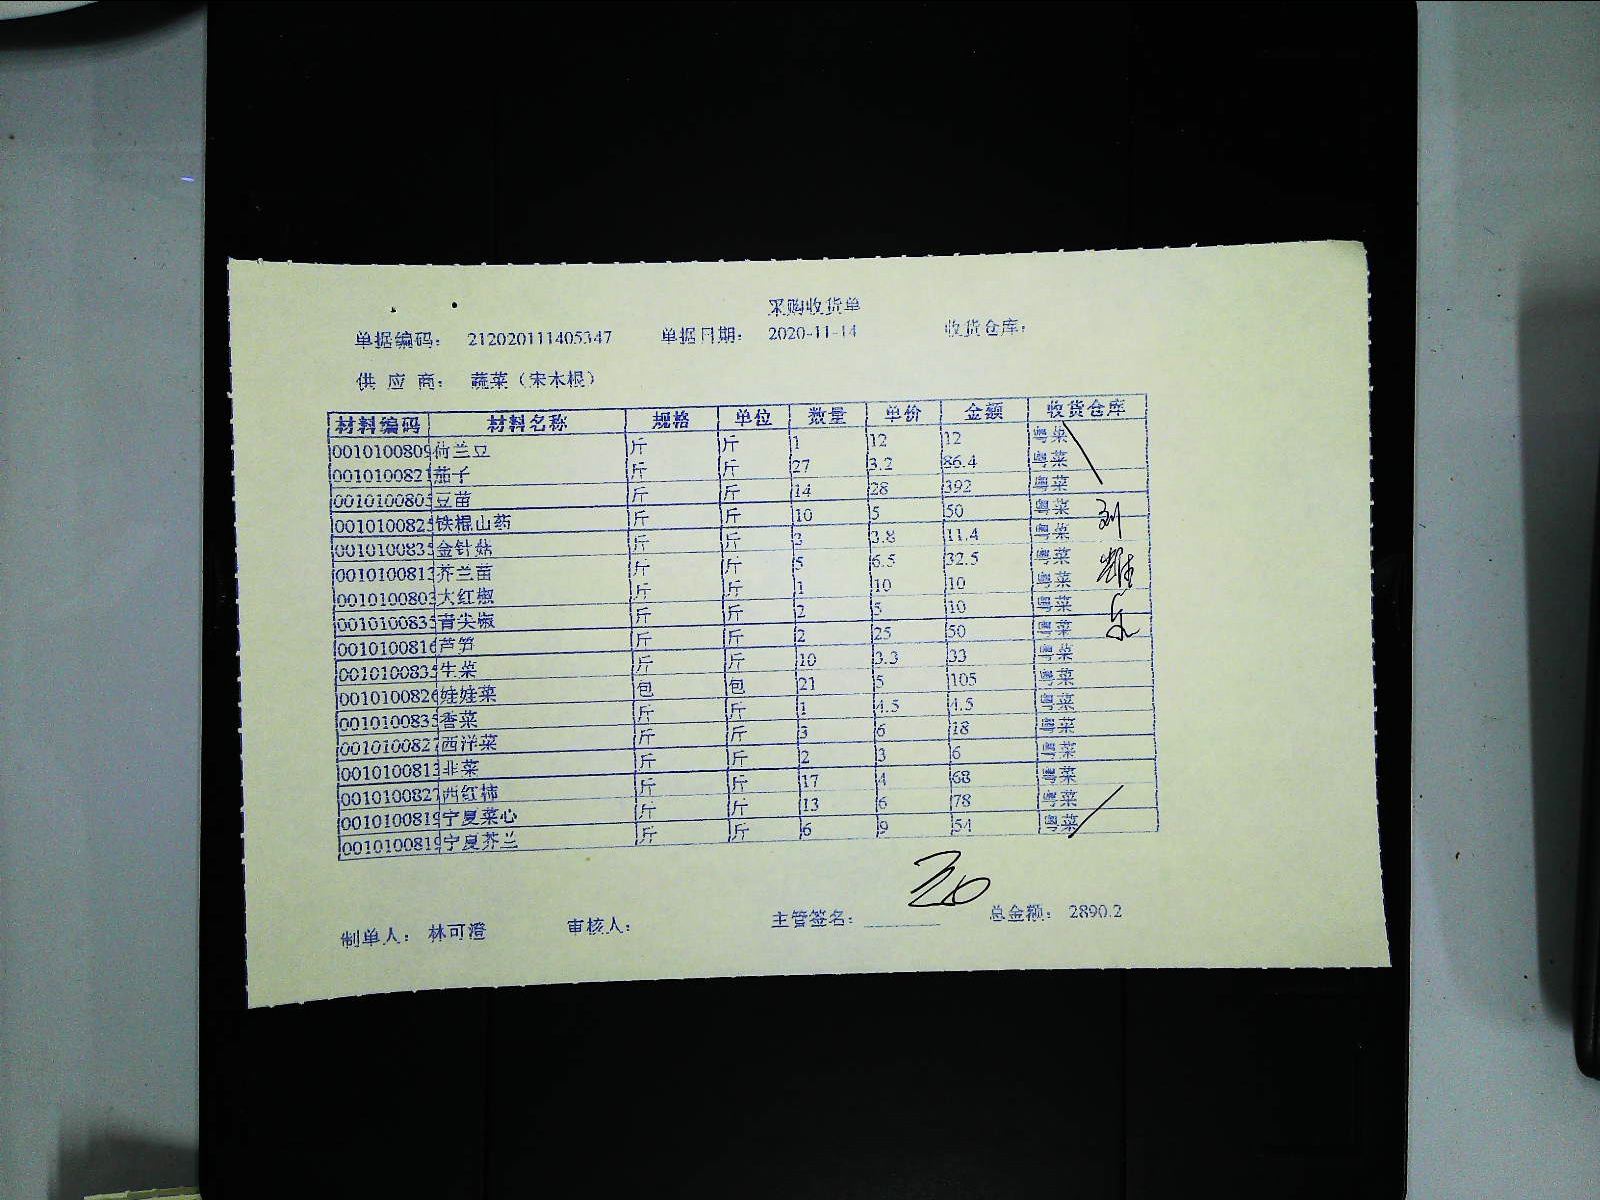 采购收货单
单据编码： 212020111405347 单据日期： 2020-11-14 收货仓库：
供 应 商： 蔬菜（宋木根）
材料编码 材料名称 规格 单位 数量 单价 金额 收货仓库
0010100809 荷兰豆 斤 斤 1 12 12 粤菜
001010082 茄子 斤 斤 27 3.2 86.4 粤菜
001010080 豆苗 斤 斤 14 28 392 粤菜
001010082 铁棍山药 斤 斤 10 5 50 粤菜
001010083 金针菇 斤 斤 3 3.8 11.4 粤菜
001010081 芥兰苗 斤 斤 5 6.5 32.5 粤菜
001010080 大红椒 斤 斤 1 10 10 粤菜
001010083 青尖椒 斤 斤 2 5 10 粤菜
001010081 芦笋 斤 斤 2 25 50 粤菜
001010083 生菜 斤 斤 10 3.3 33 粤菜
001010082 娃娃菜 包 包 21 5 105 粤菜
001010083 香菜 斤 斤 1 4.5 4.5 粤菜
001010082 西洋菜 斤 斤 3 6 18 粤菜
001010081 韭菜 斤 斤 2 3 6 粤菜
001010082 西红柿 斤 斤 17 4 68 粤菜
001010081 宁夏菜心 斤 斤 13 6 78 粤菜
001010081 宁夏芥兰 斤 斤 6 9 54 粤菜
制单人： 林可澄 审核人： 主管签名： 总金额： 2890.2